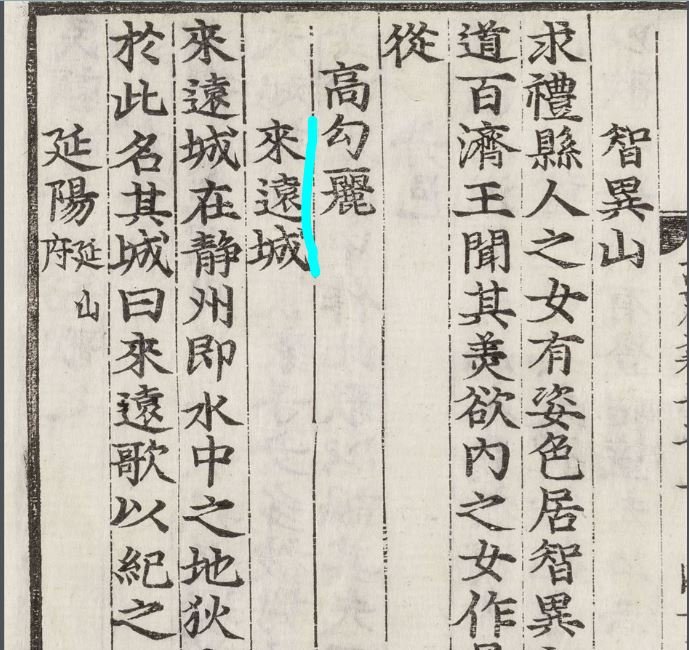 智異山
求禮縣人之女有姿色居智異
道百濟王聞其美欲內之女作
從
高勾麗
來遠城
來遠城在静州即水中之地狄
於此名其城曰來遠歌以紀之
延陽延山府